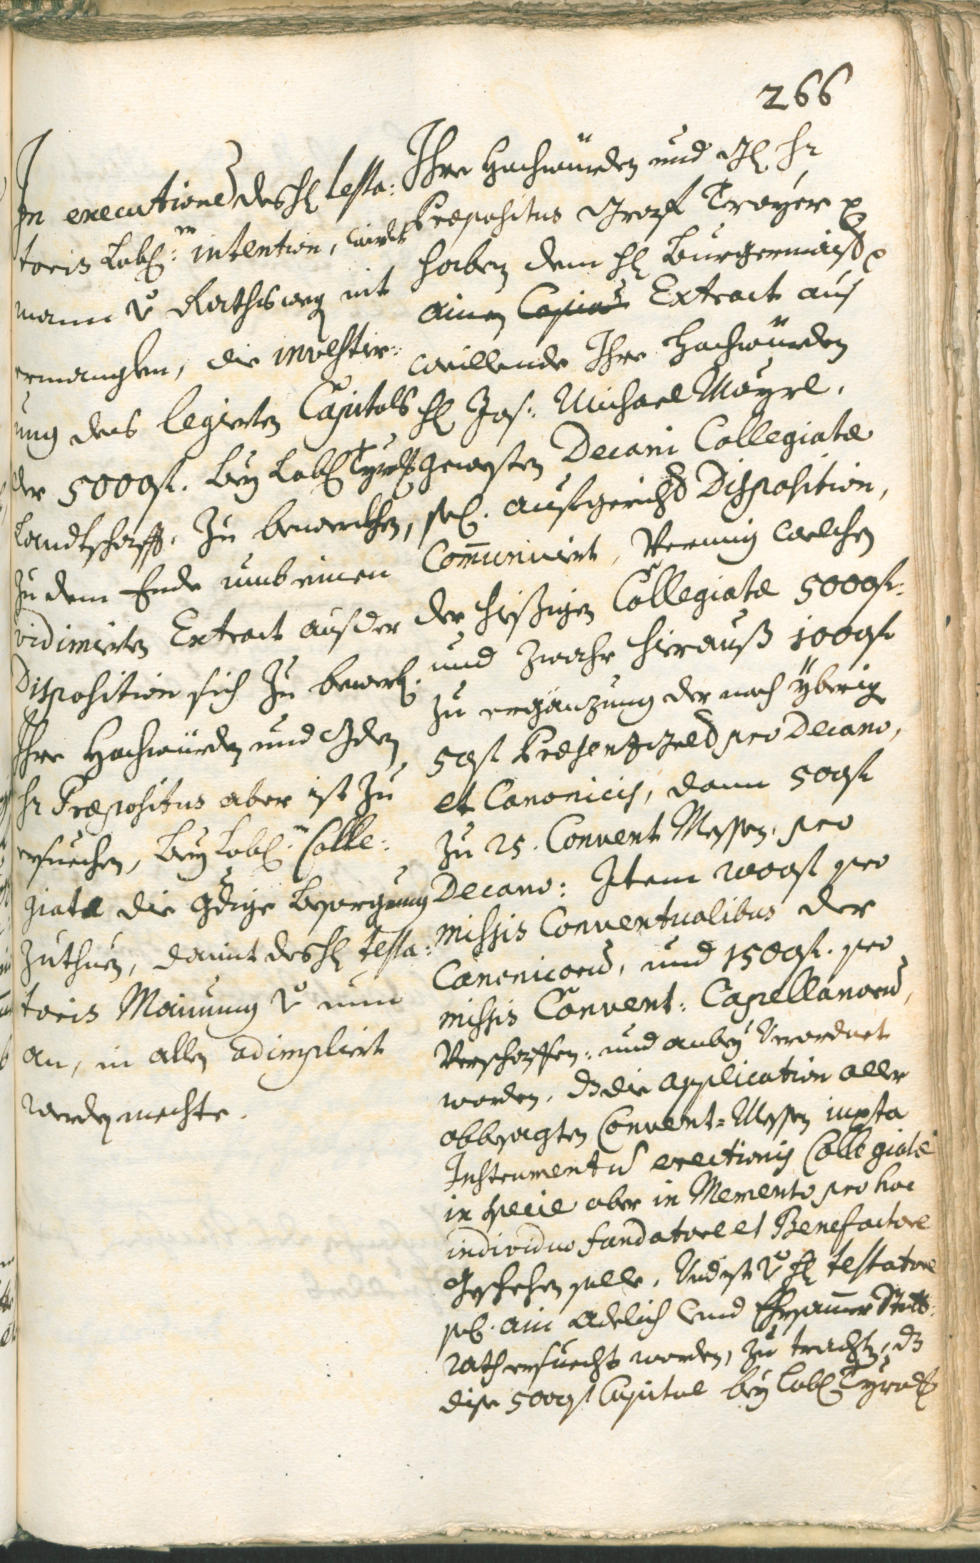 266
In executione des H: testa:
toris Lobl: intention, wirdet
mann Rathsweg nit
ermanglen, die investir:
ung des legierten Capitals
der 5000 fl. bey Lobl: Tyrol:
Landtschafft. zu bewerckhen,
zu dem Ende umb einen
vidimirten Extract aus der
Disposition sich zu bewerb:
Ihro Hochwürden und Gden
Hr Præpositus aber ist zu
ersuechen, bey Lobl: Colle:
giatæ die gdige besorgung
zuthuen, damit des H: testa:
toris Mainung nun
an, in allen adimpliert
werden mechte.
Ihro Hochwürden und Gl: Hr
Præpositus Graf Troyer
haben dem H: Burgermaister
ainen Extract aus
weillende Ihro Hochwürden
H: Jos: Michael Mayrl,
gewesten Decani Collegiatæ
sel: aufgericht Disposition,
Communiciert, Vermüg welchen
der hießigen Collegiatæ 5000 fl:
und zwahr hierauß 1000 fl
zu ergänzung der noch yberig
50 fl Præsenzgeld pro Decano,
et Canonicis, dann 500 fl
zu 25. Convent Messen, pro
Decano: Item 2000 fl pro
missis Conventualibus der
Canonicorum, und 1500 fl. pro
missis Convent: Capellanorum,
Verschaffen: und anbey Verordnet
worden, dz die application aller
obbesagten Convent-Messen iuxta
Instrumentum erectionis Collegiatæ
in specie aber in Memento pro hoc
individuo fundatore et Benefactore
Geschehen solle, Und ist H: testatore
sel: ain Adelich und Ehrsamer Statt:
rath ersuecht worden, zu trachten, dz
dise 5000 fl Capital bey Lobl: Tyrol: